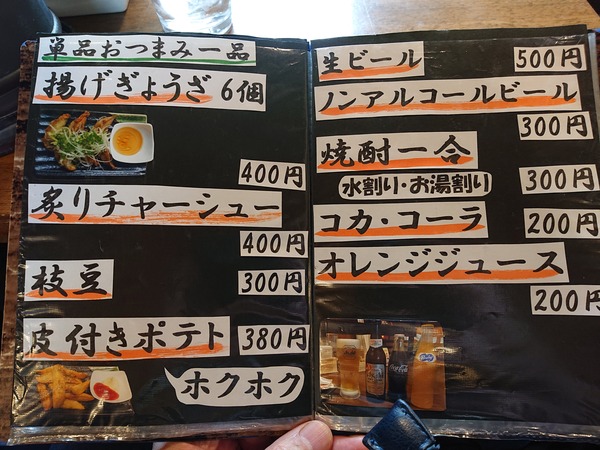 単品おつまみ一品
揚げぎょうざ 6個
400円
炙りチャーシュー
400円
枝豆 300円
皮付きポテト 380円
ホクホク
生ビール 500円
ノンアルコールビール
300円
焼酎一合
水割り・お湯割り 300円
コカ・コーラ 200円
オレンジジュース
200円